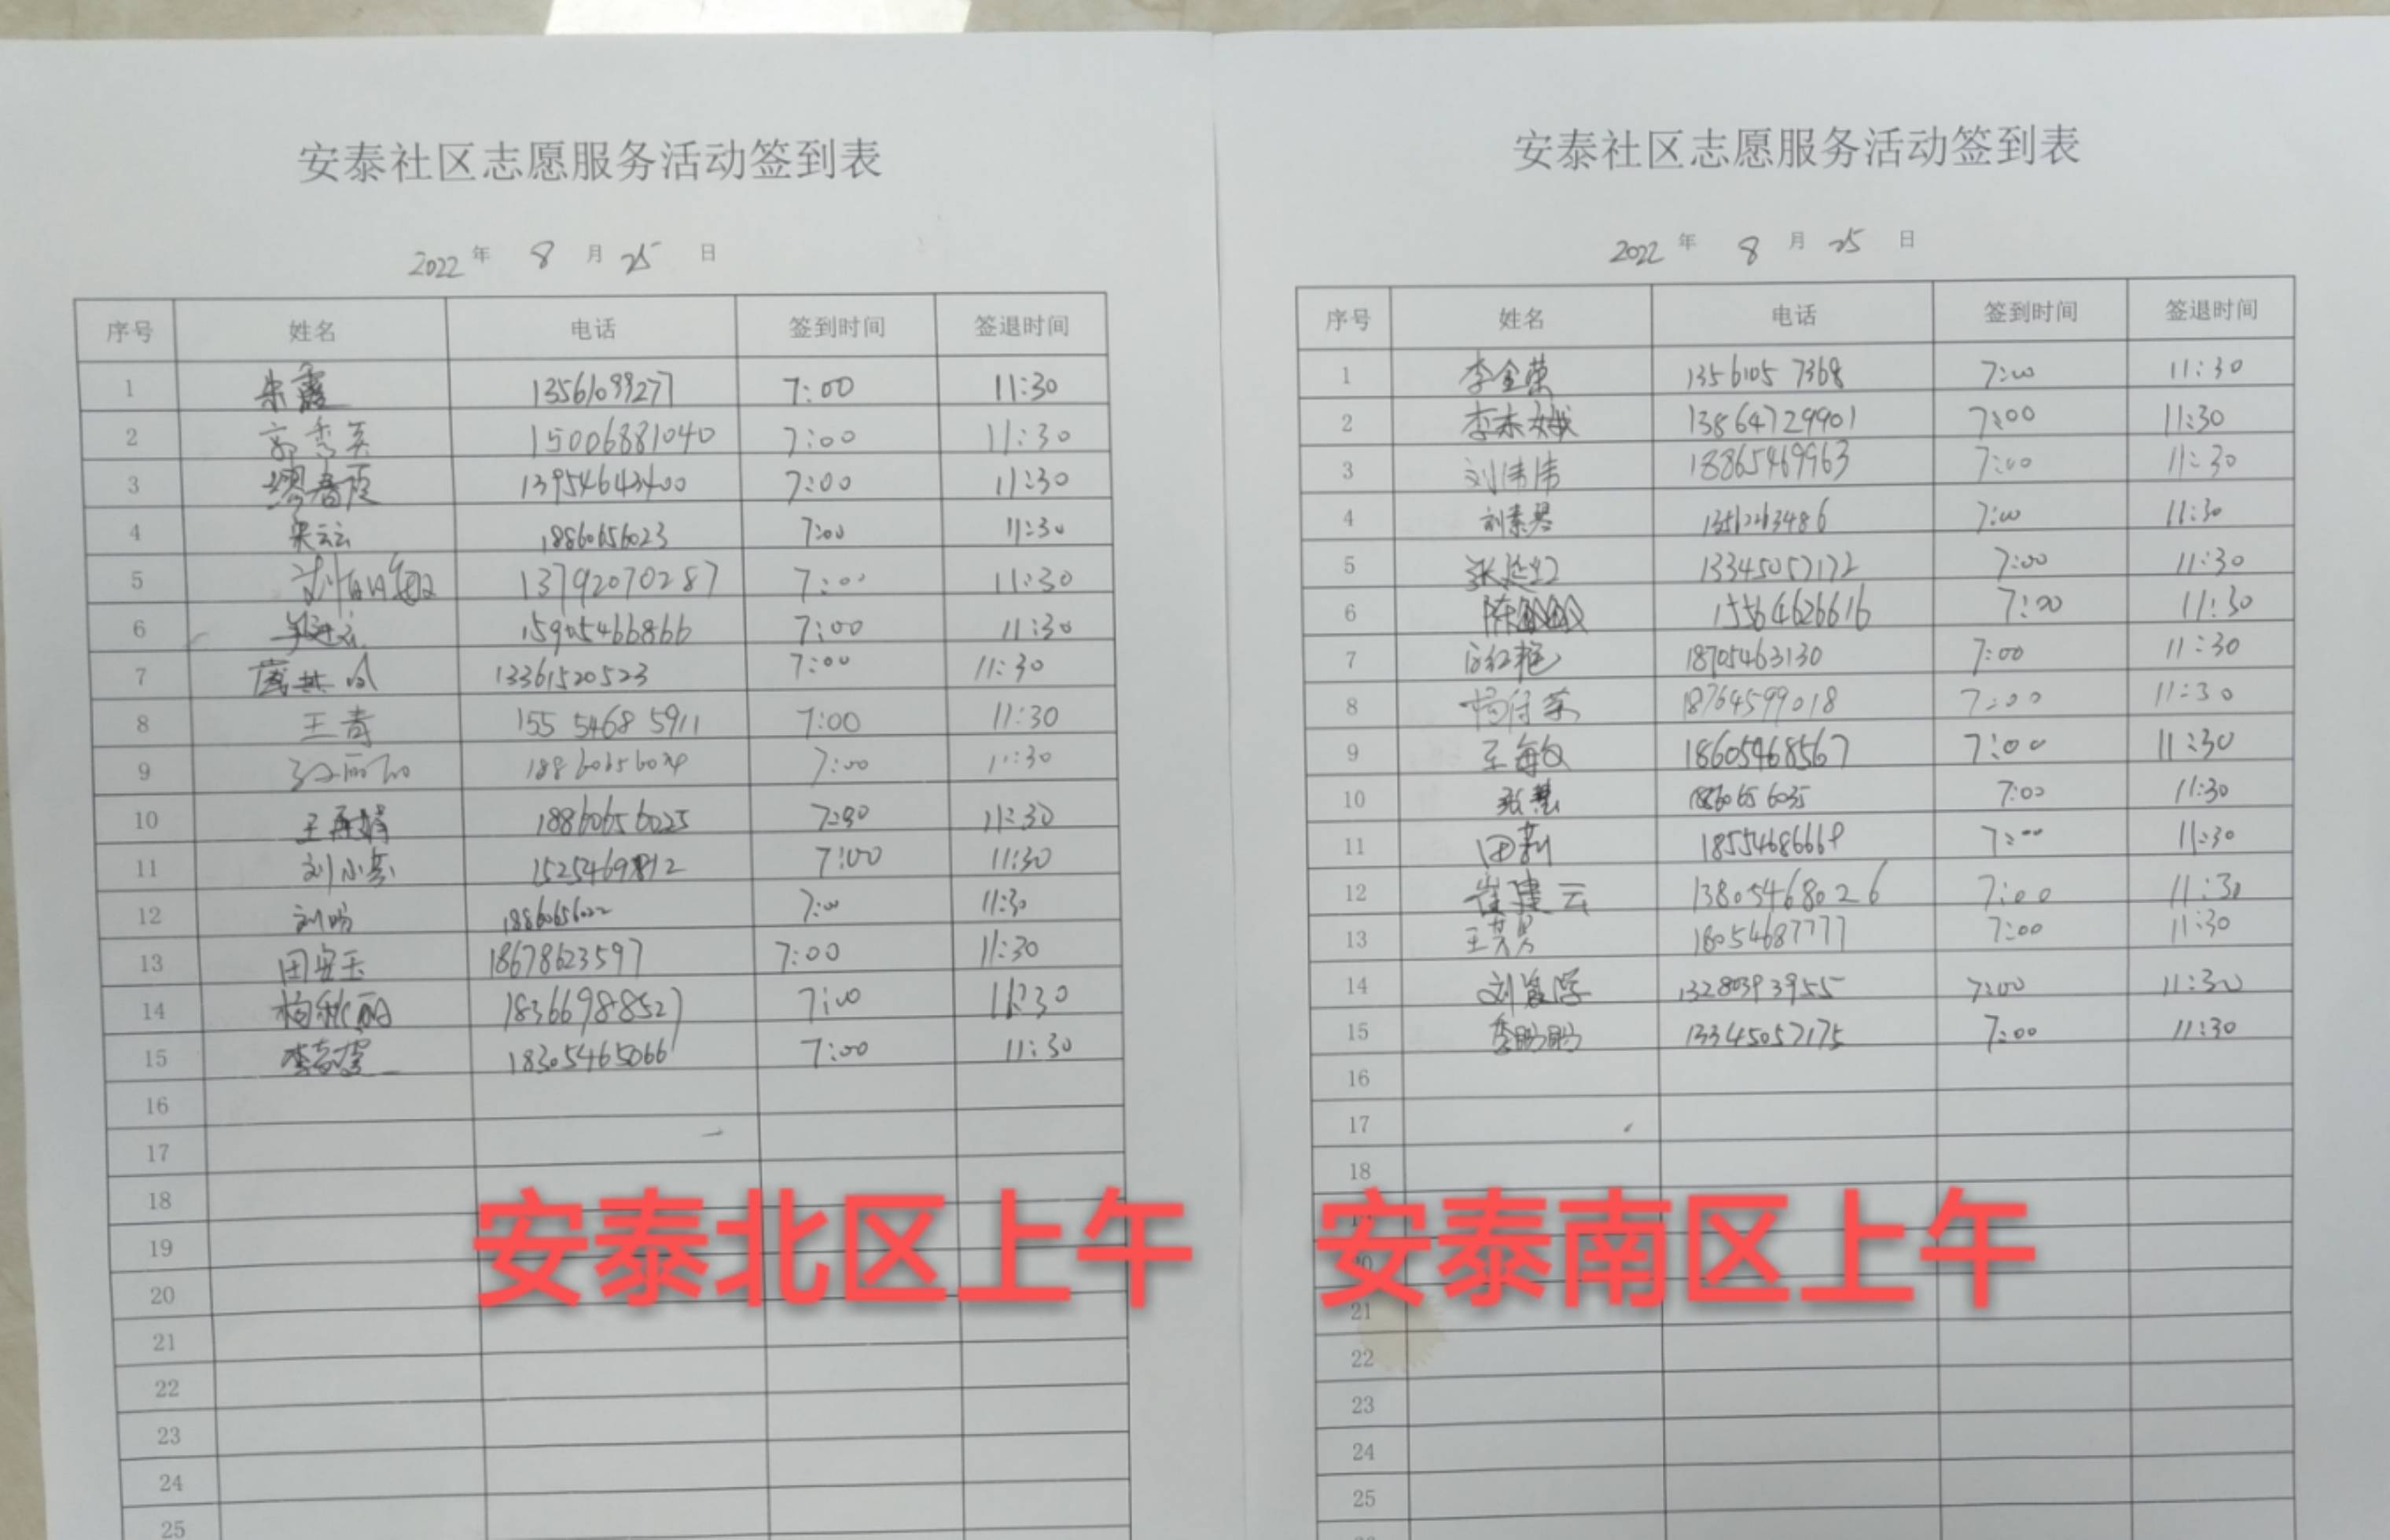 安泰社区志愿服务活动签到表
2022 年 8 月 25 日
序号 姓名 电话 签到时间 签退时间
1 朱霞 13561099277 7:00 11:30
2 郭秀英 15006881040 7:00 11:30
3 7:00 11:30
4 云云 18860656023 7:00 11:30
5 刘 13792070287 7:00 11:30
6 15905466866 7:00 11:30
7 13361520523 7:00 11:30
8 王青 155 5468 5911 7:00 11:30
9 7:00 11:30
10 王再娟 18860656025 11:30
11 刘小 7:00 11:30
12 刘 7:00 11:30
13 田安玉 18678623597 7:00 11:30
14 杨秋丽 18366988527 7:00 11:30
15 李 18305465066 7:00 11:30
16
17
18
19
20
21
22
23
24
25
安泰北区上午
安泰社区志愿服务活动签到表
2022 年 8 月 25 日
序号 姓名 电话 签到时间 签退时间
1 李金荣 1356105 7368 7:00 11:30
2 李 娥 13864729901 7:00 11:30
3 刘伟伟 18865469963 7:00 11:30
4 刘素琴 13561263486 7:00 11:30
5 张延 13345057172 7:00 11:30
6 陈 15564626616 7:00 11:30
7 红艳 18705463130 7:00 11:30
8 杨 18764599018 7:00 11:30
9 王海 18605468567 7:00 11:30
10 张慧 7:00 11:30
11 田新 7:00 11:30
12 崔建云 13805468026 7:00 11:30
13 王 18054687777 7:00 11:30
14 刘 13280393955 7:00 11:30
15 李盼盼 13345057175 7:00 11:30
16
17
18
21
22
23
24
25
安泰南区上午